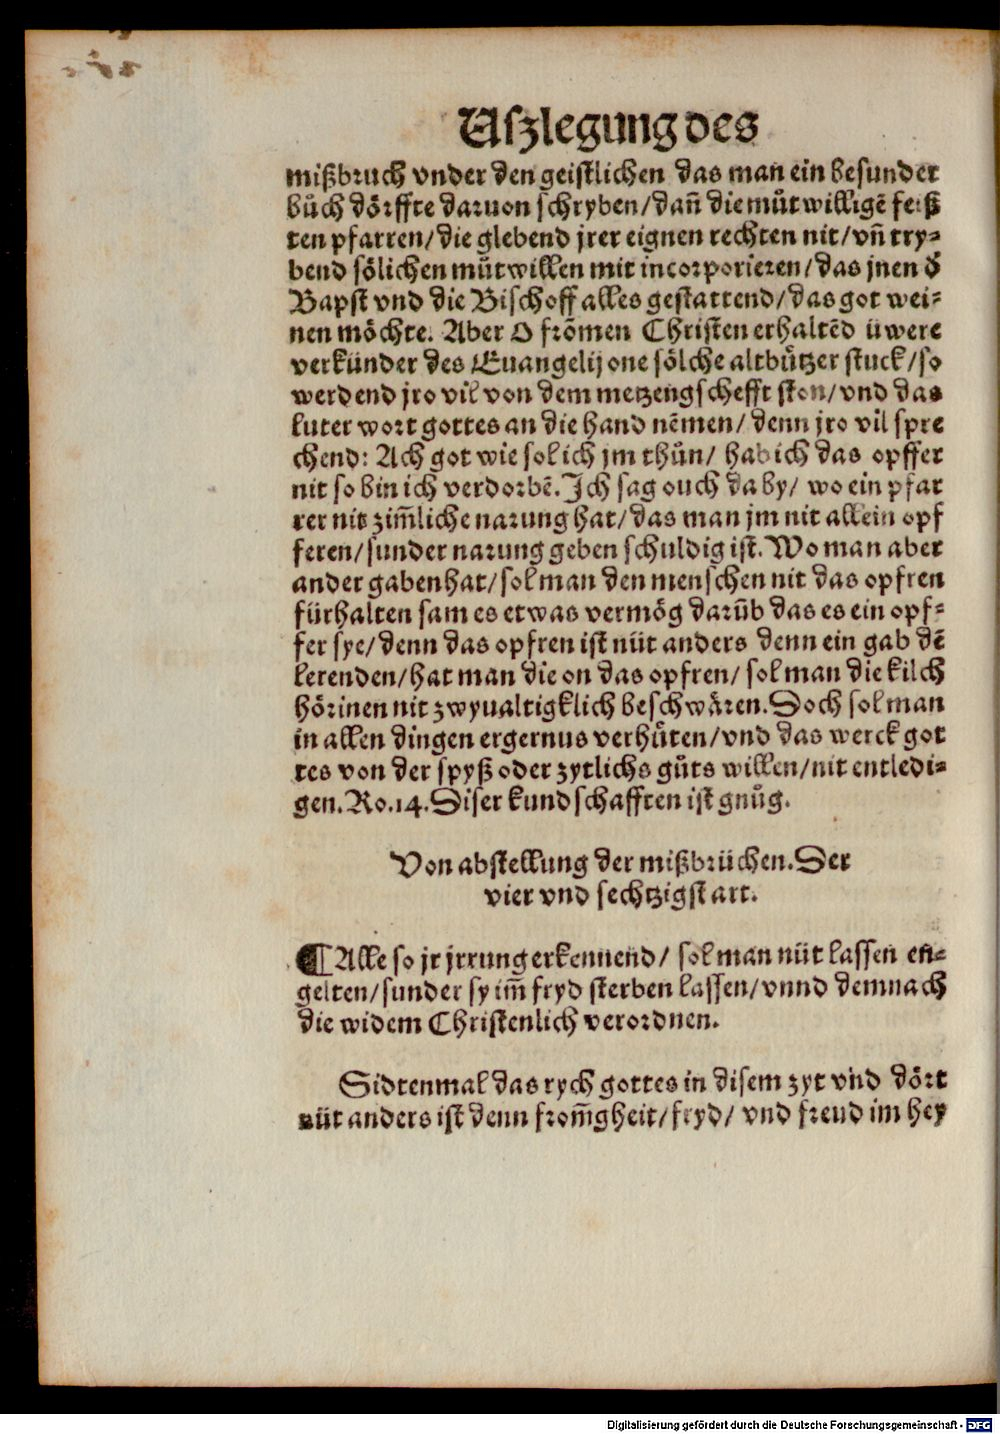 Uſzlegung des
mißbruch vnder den geiſtlichen das man ein beſunder
bůch dörffte daruon ſchryben/dañ die můtwilligē feiß
ten pfarren/die glebend jrer eignen rechten nit/vñ try⸗
bend ſölichen můtwillen mit incorporieren/das jnen d̕
Bapſt vnd die Biſchoff alles geſtattend/das got wei⸗
nen möchte. Aber O frõmen Chriſten erhaltẽd üwere
verkünder des Euangelij one ſölche altbützer ſtuck/ſo
werdend jro vil von dem metzengſchefft ſton/vnd das
luter wort gottes an die hand nẽmen/denn jro vil ſpre
chend: Ach got wie ſol ich jm thůn/ hab ich das opffer
nit ſo bin ich verdorbē. Ich ſag ouch da by/ wo ein pfar
rer nit zim̃liche narung hat/das man jm nit allein opf
feren/ſunder narung geben ſchuldig iſt. Wo man aber
ander gaben hat/ſol man den menſchen nit das opfren
fürhalten ſam es etwas vermög darũb das es ein opf⸗
fer ſye/denn das opfren iſt nüt anders denn ein gab dē
lerenden/hat man die on das opfren/ ſol man die kilch
hörinen nit zwyualtigklich beſchwären. Doch ſol man
in allen dingen ergernus verhůten/vnd das werck got
tes von der ſpyß oder zytlichs gůts willen/nit entledi⸗
gen. Ro. 14. Diſer kundſchafften iſt gnůg.
Von abſtellung der mißbrüchen. Der
vier vnd ſechtzigſt art.
¶ Alle ſo jr jrrung erkennend/ ſol man nüt laſſen en⸗
gelten/ſunder ſy im̃ fryd ſterben laſſen/vnnd demnach
die widem Chriſtenlich verordnen.
Sidtenmal das rych gottes in diſem zyt vnd dört
nüt anders iſt denn from̃gheit/fryd/ vnd freud im hey
Digitalisierung gefördert durch die Deutsche Forschungsgemeinschaft - DFG